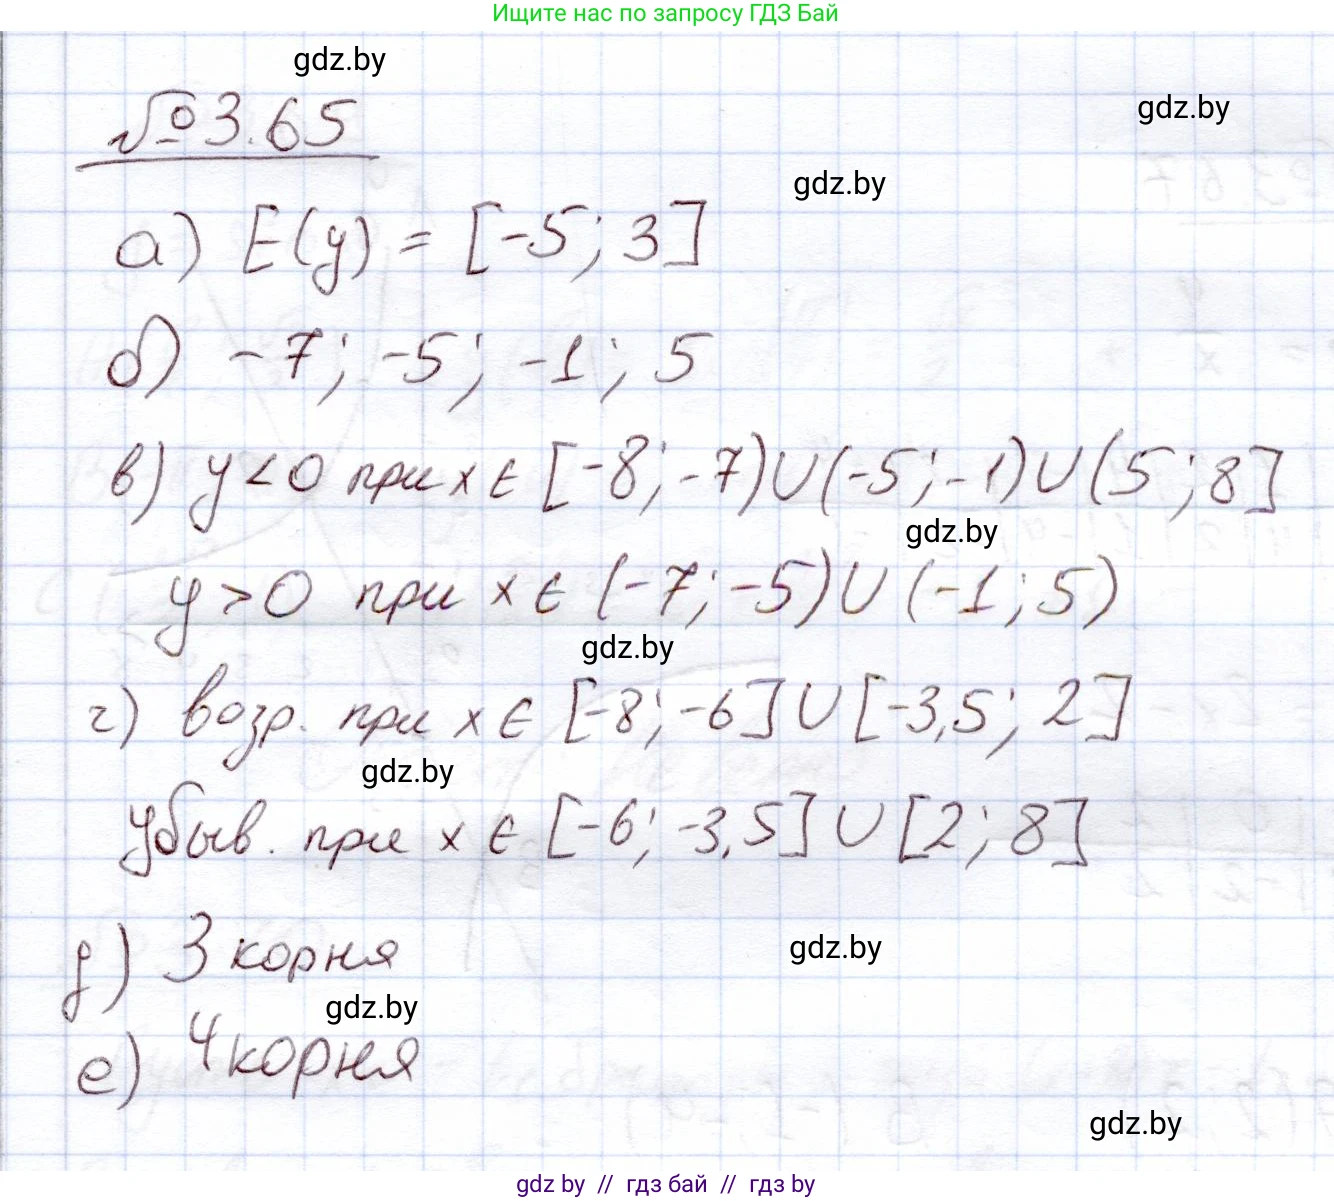 Ищите нас по запросу ГДЗ Бай
gdz.by
№ 3.65
gdz.by
gdz.by
а) E(y) = [-5; 3]
б) -7; -5; -1; 5
в) y < 0 при x ∈ [-8; -7) ∪ (-5; -1) ∪ (5; 8]
gdz.by
y > 0 при x ∈ (-7; -5) ∪ (-1; 5)
gdz.by
г) возр. при x ∈ [-8; -6] ∪ [-3,5; 2]
gdz.by
убыв. при x ∈ [-6; -3,5] ∪ [2; 8]
д) 3 корня
gdz.by
gdz.by
е) 4 корня
gdz.by
gdz by // гдз бай // gdz by